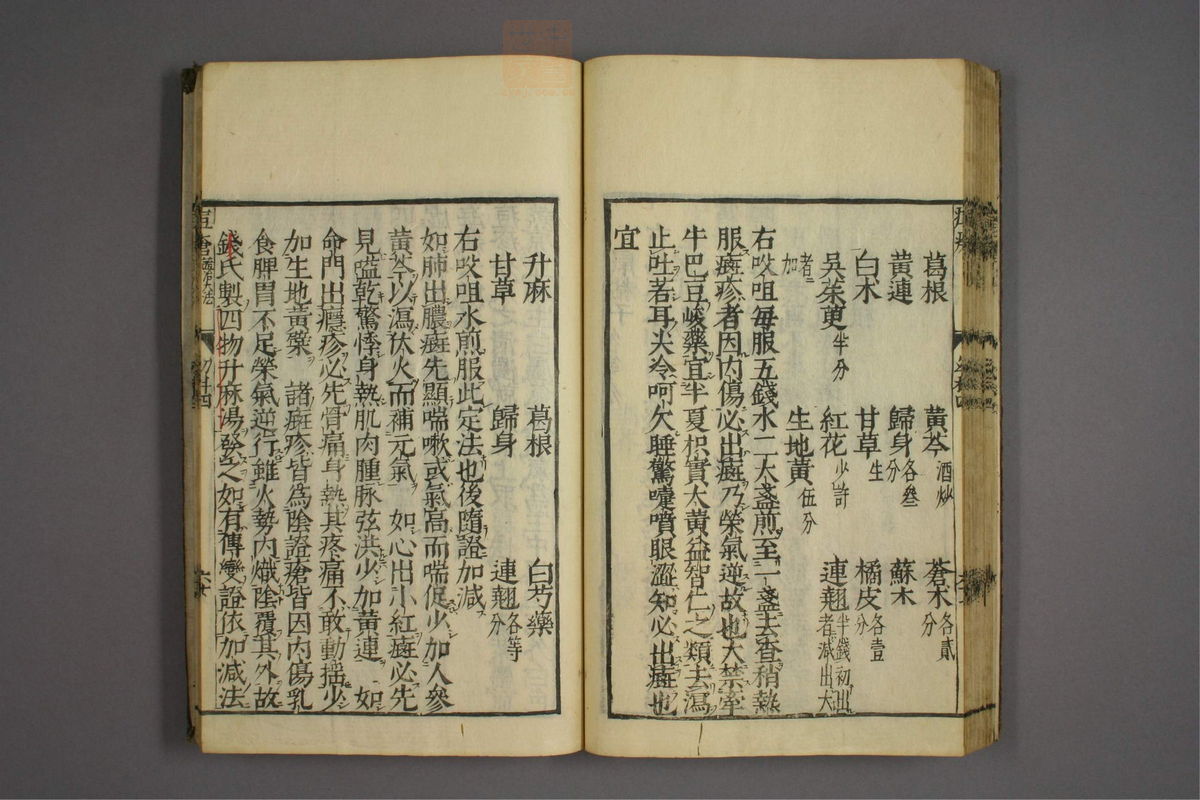 葛根 黄芩酒炒 蒼木各貳分
黄連 歸身各叁分 蘇木
白木 甘草生 橘皮各壹分
吳茱萸半分 紅花少許 連翹半錢初出者減出大
者加 生地黄伍分
右㕮咀每服五錢水二大盞煎至一盞去查稍熱
服斑疹者因内傷必出斑乃榮氣逆故也大禁牽
牛巴豆峻藥宜半夏枳實大黄益智仁之類去瀉
止吐若耳尖冷呵欠睡驚嚏噴眼澀知必出斑也
宜
升麻 葛根 白芍藥
甘草 歸身 連翹各等分
右㕮咀水煎服此定法也後隨證加减
如肺出膿斑先顯喘嗽或氣高而喘促少加人參
黄芩以瀉伏火而補元氣 如心出小紅斑必先
見嗌乾驚悸身熱肌肉腫脉弦洪少加黄連 如
命門出癮疹必先骨痛身熱其疼痛不敢動揺少
加生地黄檗 諸斑疹皆為陰證瘡皆因内傷乳
食脾胃不足榮氣逆行雖火勢内熾陰覆其外故
錢氏製四物升麻湯發之如有傳變證依加減法